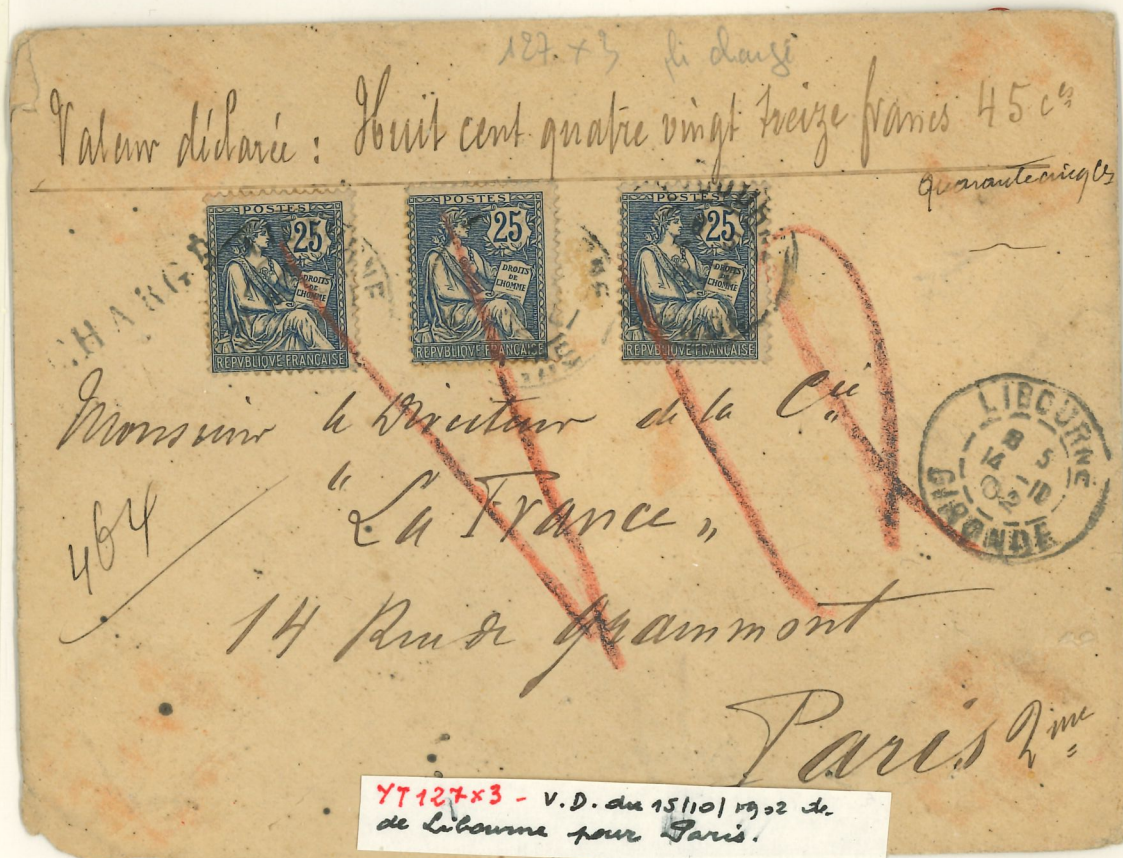 127 x 3 chargé
Valeur déclarée : Huit cent quatre vingt treize francs 45 ces
quarante cinq ces
POSTES
25
DROITS
DE
L'HOMME
REPVBLIQVE FRANÇAISE
POSTES
25
DROITS
DE
L'HOMME
REPVBLIQVE FRANÇAISE
POSTES
25
DROITS
DE
L'HOMME
REPVBLIQVE FRANÇAISE
CHARGÉ
Monsieur le Directeur de la Cie
"La France"
464
14 Rue de Grammont
Paris 2me
LIBOURNE
8 5
14 -10
02
GIRONDE
YT 127x3 - V.D. du 15/10/1902 de
de Libourne pour Paris.